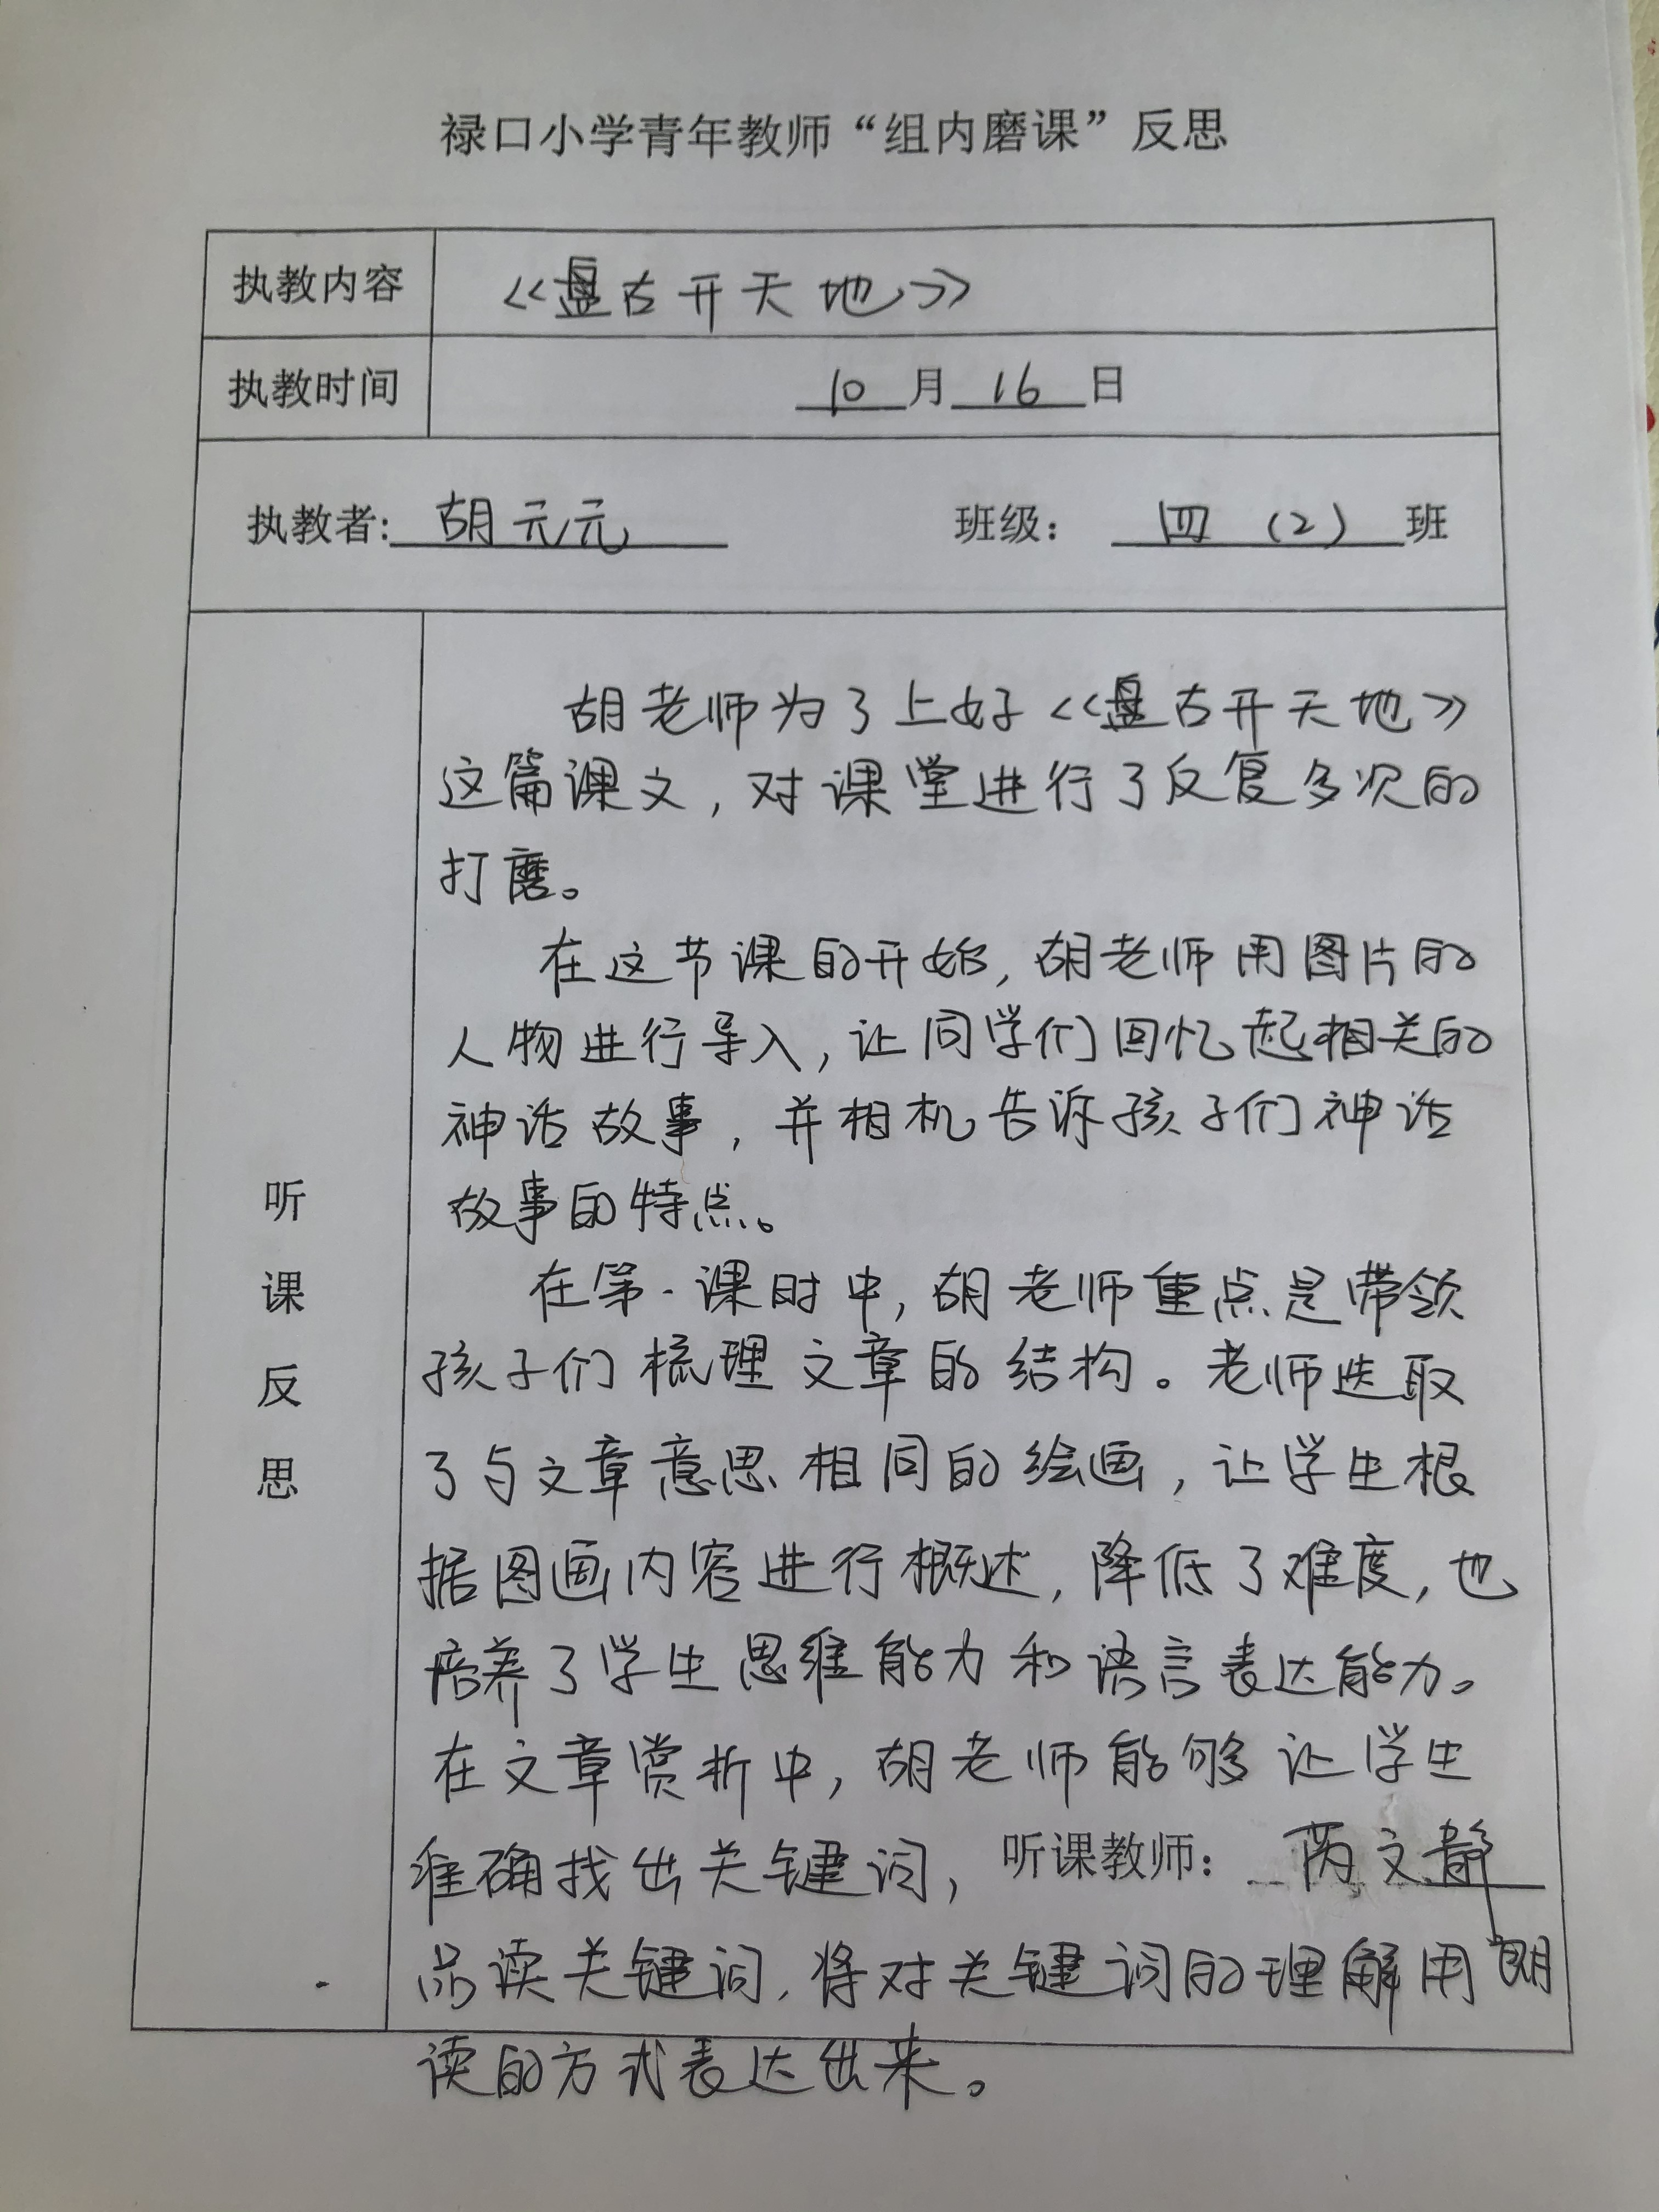 禄口小学青年教师“组内磨课”反思
执教内容 《盘古开天地》
执教时间 10月16日
执教者:胡元元 班级：四（2）班
听课反思
胡老师为了上好《盘古开天地》
这篇课文，对课堂进行了反复多次的
打磨。
在这节课的开始，胡老师用图片的
人物进行导入，让同学们回忆起相关的
神话故事，并相机告诉孩子们神话
故事的特点。
在第一课时中，胡老师重点是带领
孩子们梳理文章的结构。老师选取
了与文章意思相同的绘画，让学生根
据图画内容进行概述，降低了难度，也
培养了学生思维能力和语言表达能力。
在文章赏析中，胡老师能够让学生
准确找出关键词，
听课教师：文静
品读关键词，将对关键词的理解用朗
读的方式表达出来。